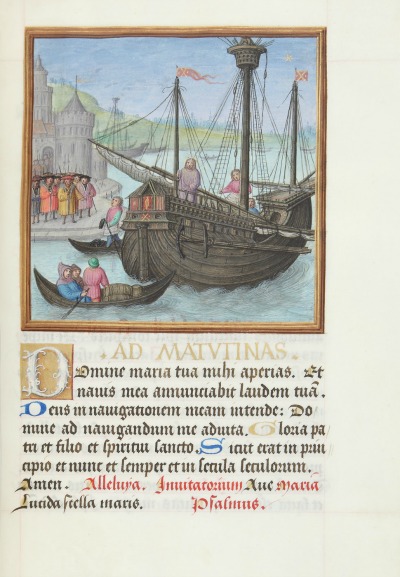 AD MATVTINAS.
Domine maria tua mihi aperias. Et
nauis mea annunciabit laudem tuā.
Deus in nauigationem meam intende: Do
mine ad nauigandum me adiuta. Gloria pa
tri et filio et spiritui sancto. Sicut erat in prin
cipio et nunc et semper et in secula seculorum.
Amen. Alleluya. Inuitatorium Aue maria
Lucida stella maris. Psalmus.